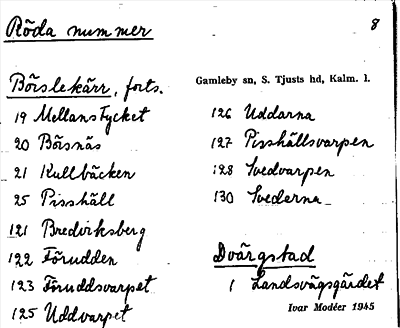 Röda nummer
8
Börslekärr, forts.
19 Mellanstycket
20 Börsnäs
21 Kullbäcken
25 Pisshäll
121 Bredviksberg
122 Förudden
123 Föruddsvarpet
125 Uddvarpet
Gamleby sn, S. Tjusts hd, Kalm. l.
126 Uddarna
127 Pisshällsvarpen
128 Svedvarpen
130 Svederna
Dvärgstad
1 Landsvägsgärdet
Ivar Modéer 1945